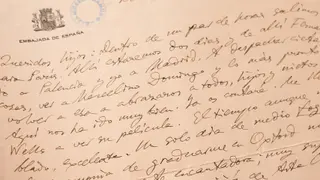 EMBAJADA DE ESPAÑA
Queridos hijos: Dentro de un par de horas salimos
para París. Allí estaremos dos días y de allí Fernan
do a Palencia y yo a Madrid. A despachar ciertas
cosas, ver a Marcelino Domingo y lo más pronto
volver a ésa a abrazaros a todos, hijos y nietos.
Aquí nos ha ido muy bien. Ya os contaré. Me
Wells a ver su película. El tiempo aunque
blado, excelente. Un solo día de medio
de graduarme en Oxford
encantadora: muy
de esta